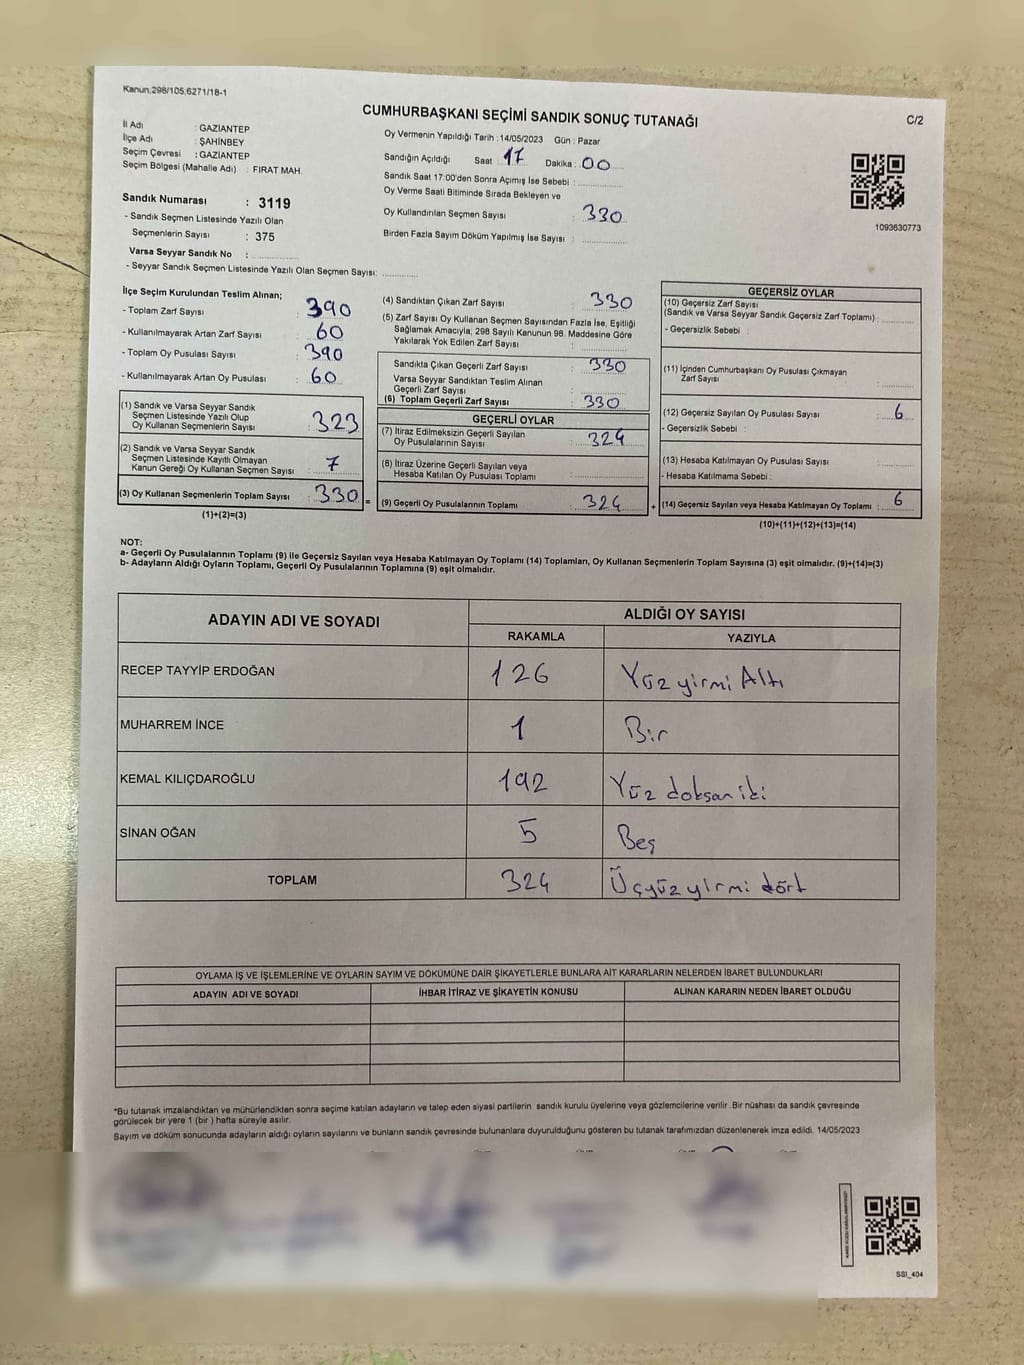 Kanun:298/105,6271/18-1
CUMHURBAŞKANI SEÇİMİ SANDIK SONUÇ TUTANAĞI
C/2
İl Adı : GAZİANTEP
İlçe Adı : ŞAHİNBEY
Seçim Çevresi : GAZİANTEP
Seçim Bölgesi (Mahalle Adı) : FIRAT MAH.
Sandık Numarası : 3119
- Sandık Seçmen Listesinde Yazılı Olan
Seçmenlerin Sayısı : 375
Varsa Seyyar Sandık No :
- Seyyar Sandık Seçmen Listesinde Yazılı Olan Seçmen Sayısı:
Oy Vermenin Yapıldığı Tarih : 14/05/2023 Gün : Pazar
Sandığın Açıldığı Saat 17 Dakika : 00
Sandık Saat 17:00'den Sonra Açımış İse Sebebi :
Oy Verme Saati Bitiminde Sırada Bekleyen ve
Oy Kullandırılan Seçmen Sayısı : 330
Birden Fazla Sayım Döküm Yapılmış İse Sayısı :
1093630773
İlçe Seçim Kurulundan Teslim Alınan;
- Toplam Zarf Sayısı : 390
- Kullanılmayarak Artan Zarf Sayısı : 60
- Toplam Oy Pusulası Sayısı : 390
- Kullanılmayarak Artan Oy Pusulası : 60
(1) Sandık ve Varsa Seyyar Sandık
Seçmen Listesinde Yazılı Olup
Oy Kullanan Seçmenlerin Sayısı : 323
(2) Sandık ve Varsa Seyyar Sandık
Seçmen Listesinde Kayıtlı Olmayan
Kanun Gereği Oy Kullanan Seçmen Sayısı : 7
(3) Oy Kullanan Seçmenlerin Toplam Sayısı : 330 =
(1)+(2)=(3)
(4) Sandıktan Çıkan Zarf Sayısı : 330
(5) Zarf Sayısı Oy Kullanan Seçmen Sayısından Fazla İse, Eşitliği
Sağlamak Amacıyla; 298 Sayılı Kanunun 98. Maddesine Göre
Yakılarak Yok Edilen Zarf Sayısı :
Sandıkta Çıkan Geçerli Zarf Sayısı : 330
Varsa Seyyar Sandıktan Teslim Alınan
Geçerli Zarf Sayısı :
(6) Toplam Geçerli Zarf Sayısı : 330
GEÇERLİ OYLAR
(7) İtiraz Edilmeksizin Geçerli Sayılan
Oy Pusulalarının Sayısı : 324
(8) İtiraz Üzerine Geçerli Sayılan veya
Hesaba Katılan Oy Pusulası Toplamı :
(9) Geçerli Oy Pusulalarının Toplamı : 324 +
GEÇERSİZ OYLAR
(10) Geçersiz Zarf Sayısı
(Sandık ve Varsa Seyyar Sandık Geçersiz Zarf Toplamı) :
- Geçersizlik Sebebi :
(11) İçinden Cumhurbaşkanı Oy Pusulası Çıkmayan
Zarf Sayısı :
(12) Geçersiz Sayılan Oy Pusulası Sayısı : 6
- Geçersizlik Sebebi :
(13) Hesaba Katılmayan Oy Pusulası Sayısı :
- Hesaba Katılmama Sebebi :
(14) Geçersiz Sayılan veya Hesaba Katılmayan Oy Toplamı : 6
(10)+(11)+(12)+(13)=(14)
NOT:
a- Geçerli Oy Pusulalarının Toplamı (9) ile Geçersiz Sayılan veya Hesaba Katılmayan Oy Toplamı (14) Toplamları, Oy Kullanan Seçmenlerin Toplam Sayısına (3) eşit olmalıdır. (9)+(14)=(3)
b- Adayların Aldığı Oyların Toplamı, Geçerli Oy Pusulalarının Toplamına (9) eşit olmalıdır.
ADAYIN ADI VE SOYADI
ALDIĞI OY SAYISI
RAKAMLA YAZIYLA
RECEP TAYYİP ERDOĞAN 126 Yüz yirmi Altı
MUHARREM İNCE 1 Bir
KEMAL KILIÇDAROĞLU 192 Yüz doksan iki
SİNAN OĞAN 5 Beş
TOPLAM 324 Üçyüz yirmi dört
OYLAMA İŞ VE İŞLEMLERİNE VE OYLARIN SAYIM VE DÖKÜMÜNE DAİR ŞİKAYETLERLE BUNLARA AİT KARARLARIN NELERDEN İBARET BULUNDUKLARI
ADAYIN ADI VE SOYADI İHBAR İTİRAZ VE ŞİKAYETİN KONUSU ALINAN KARARIN NEDEN İBARET OLDUĞU
*Bu tutanak imzalandıktan ve mühürlendikten sonra seçime katılan adayların ve talep eden siyasi partilerin sandık kurulu üyelerine veya gözlemcilerine verilir. Bir nüshası da sandık çevresinde
görülecek bir yere 1 (bir) hafta süreyle asılır.
Sayım ve döküm sonucunda adayların aldığı oyların sayılarını ve bunların sandık çevresinde bulunanlara duyurulduğunu gösteren bu tutanak tarafımızdan düzenlenerek imza edildi. 14/05/2023
SSI_404